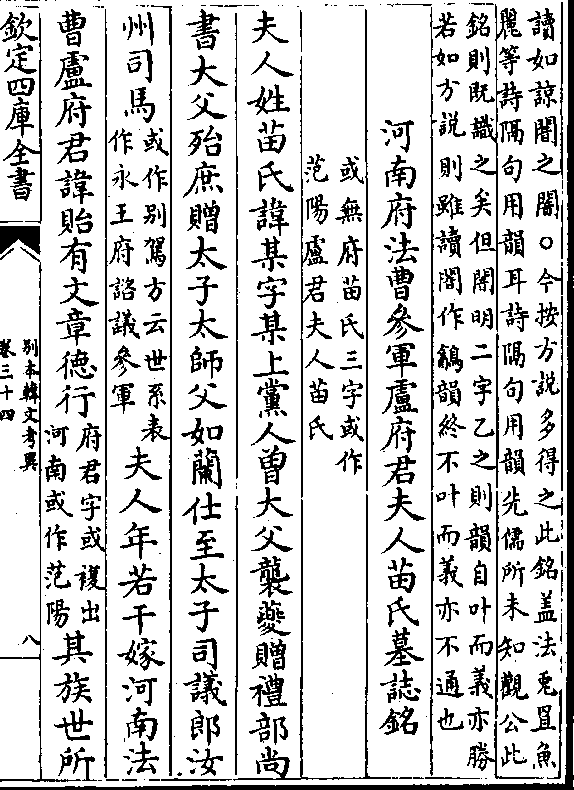 讀如諒闇之闇○今按方說多得之此銘盖法兎罝魚
麗等詩隔句用韻耳詩隔句用韻先儒所未知觀公此
銘則既識之矣但闇明二字乙之則韻自叶而義亦勝
若如方說則雖讀闇作鷂韻終不叶而義亦不通也
河南府法曹參軍盧府君夫人苗氏墓誌銘
或無府苗氏三字或作
范陽盧君夫人苗氏
夫人姓苗氏諱某字某上黨人曽大父襲夔贈禮部尚
書大父殆庶贈太子太師父如蘭仕至太子司議郎汝
州司馬
或作别駕方云世系表
作永王府諮議參軍
夫人年若干嫁河南法
曹盧府君諱貽有文章德行
府君字或複出
河南或作范陽
其族世所
欽定四庫全書
别本韓文考異
卷三十四
八